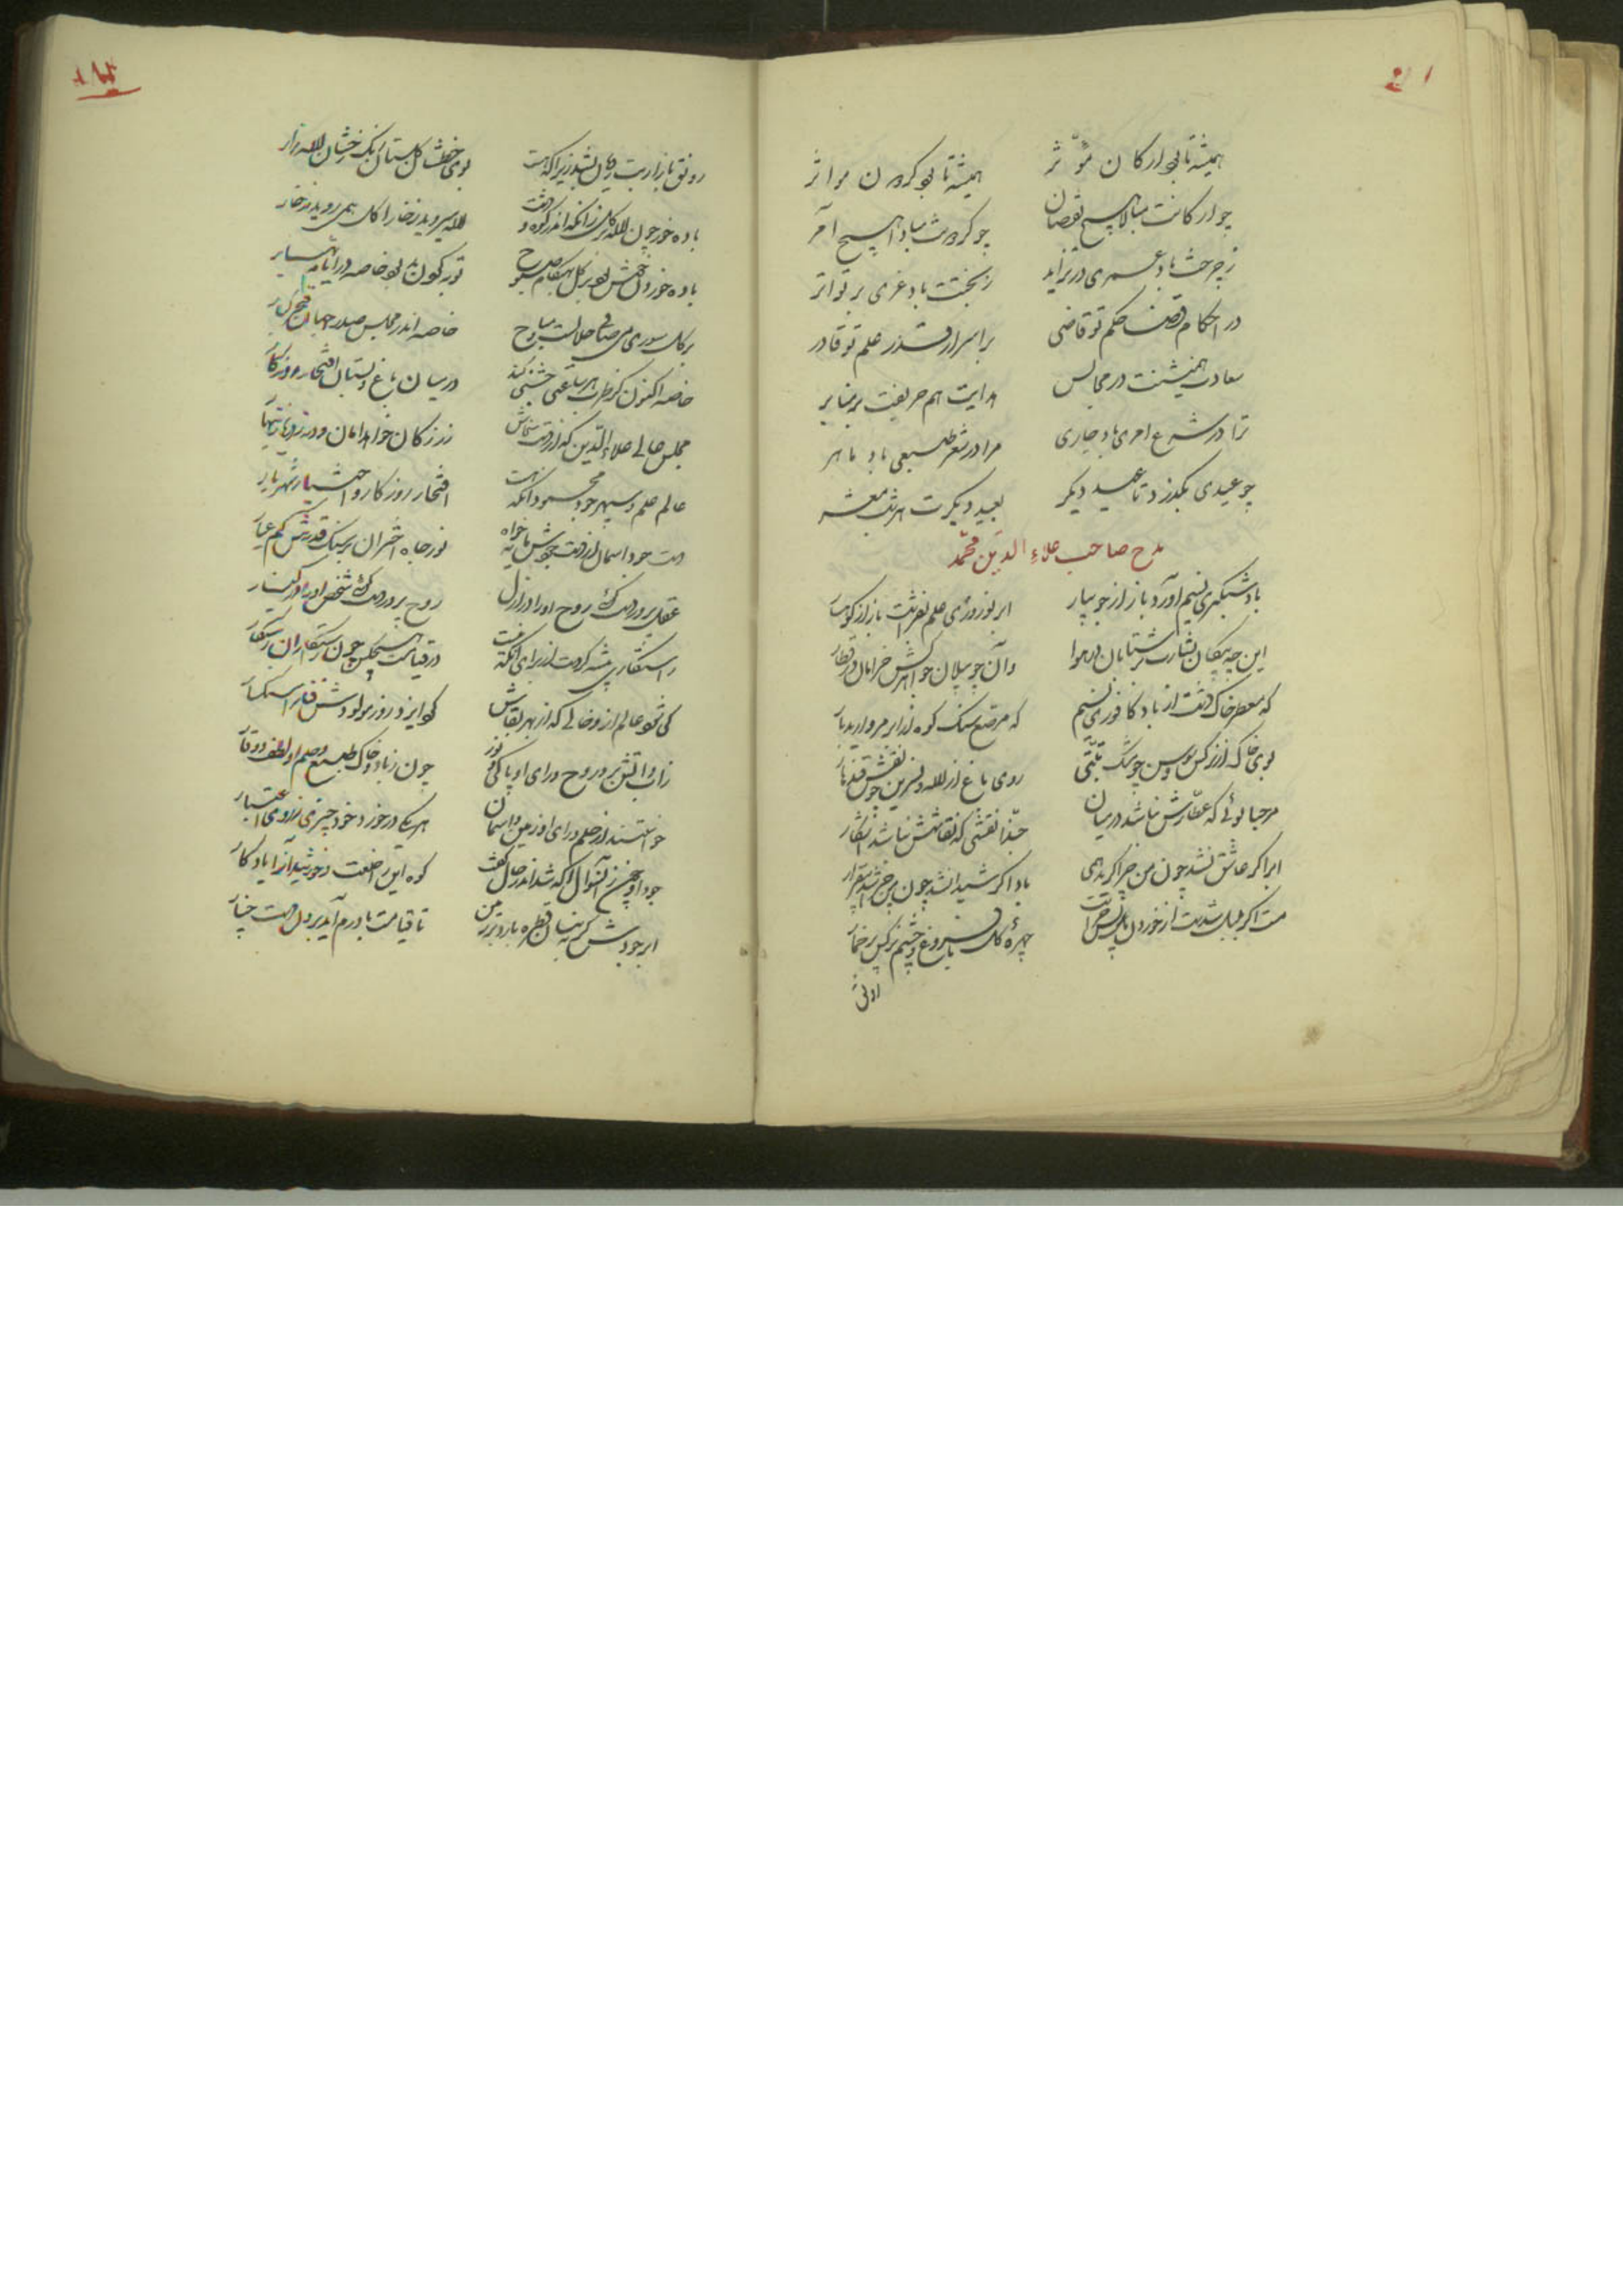 همیشه تا بود ارکان مؤثر همیشه تا بود کردون مواتر
چو ارکانت مبادا هیچ نقصان چو کردونت مبادا هیچ آخر
ز چرخت باد عمری در تزاید ز بختت باد عزی بر تواتر
در احکام قضا حکم تو قاضی بر اسرار قدر علم تو قادر
سعادت همنشینت در مجالس هدایت هم حریفت بر منابر
ترا در شرع امری باد جاری مرا در شعر طبعی باد ماهر
چو عیدی بگذرد تا عید دیکر بعید دیکرت هر شب مبشر
مدح صاحب علاء الدین محمّد
باد شبکیری نسیم آورد باز از جویبار ابر نوروزی علم بفراشت باز از کوهسار
این چو پیکان بشارت بر شتابان در هوا وان چو پیلان جواهرکش خرامان در قطار
که معطر خاک دشت از باد کافوری نسیم که مرصع سنک کوه از ابر مروارید بار
بوی خاک از نرکس و سوسن چو مشک تبتی روی باغ از لاله و نسرین چو نقش قندهار
مرحبا بوئی که عطارش نباشد در میان حبّذا نقشی که نقاشش نباشد آشکار
ابر اکر عاشق نشد چون من چرا کرید همی باد اکر شیدا نشد چون من چرا شد بیقرار
مست اکر بلبل شدست از خوردن مل پس چراست چهرهٔ کل با فروغ و چشم نرکس پر خمار
رونق بازار بت رویان بشد زیرا که هست بوی خطشان کل بستان رنک رخشان لاله زار
باده خور چون لاله و کل زانکه اندر کوه و دشت لاله میروید ز خارا کل همی روید ز خار
باده خوردن خوش بود بر کل بهنکام صبوح توبه کردن بد بود خاصه در ایام بهار
بر کل سوری می صافی حلالست و مباح خاصه اندر مجلس صدر جهان
خاصه اکنون کز طرب هر ساعتی جشنی کند در میان باغ و بستان افتخار روزکار
مجلس عالی علاء الدین که از دست سخاش زر ز کان خواهد امان و در ز دریا زینهار
عالم علم و سپهر جود محمود انکه هست افتخار روزکار و اختیار شهریار
نور جاه اختران بر سنک قدرش کم عیار
عقل پرور دست کوئی روح او را در ازل روح پرور دست کوئی شخص او را در کنار
رستکاری پیشه کردست از برای آنکه نیست در قیامت هیچکس چون رستکاران رستکار
کی شود عالم از و خالی که از بهر بقاش کوه ایزد روز مولودش
زاب و اتش بر در روح و رای او پاکی و نور چون ز باد و خاک طبع و حلم او لطف و وقار
خواستند از حلم و رای او زمین و اسمان هر یکی در خورد خود چیزی ز روی اعتبار
جود او کوه این خلعت و خورشید آنرا یادکار
ابر جودش کر به نیسان قطره بارد بر زمین تا قیامت بار درم آید برون دست چنار